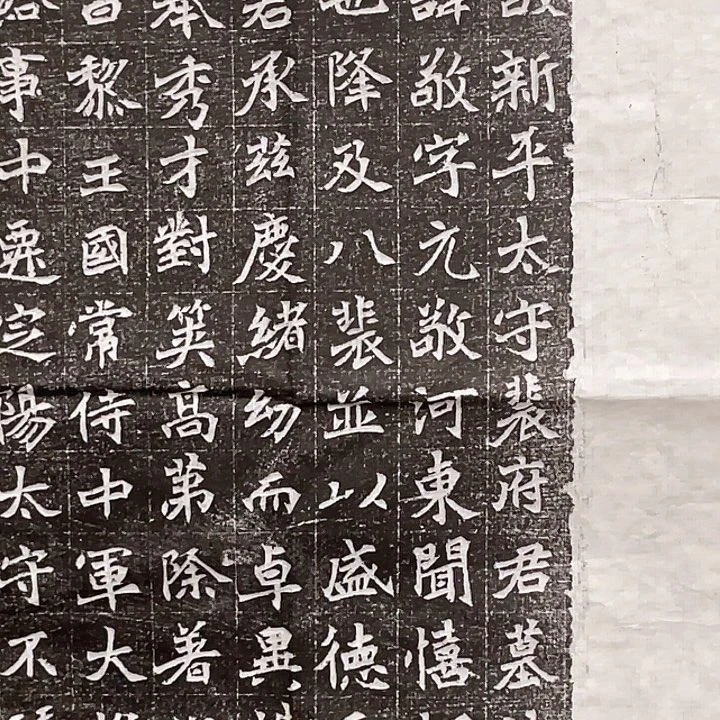 故新平太守裴府君墓
諱敬字元敬河東聞憘
也降及八裴並以盛德
君承茲慶緒幼而卓異
秀才對筴高第除著
黎王國常侍中軍大
給事中遷定陽太守不